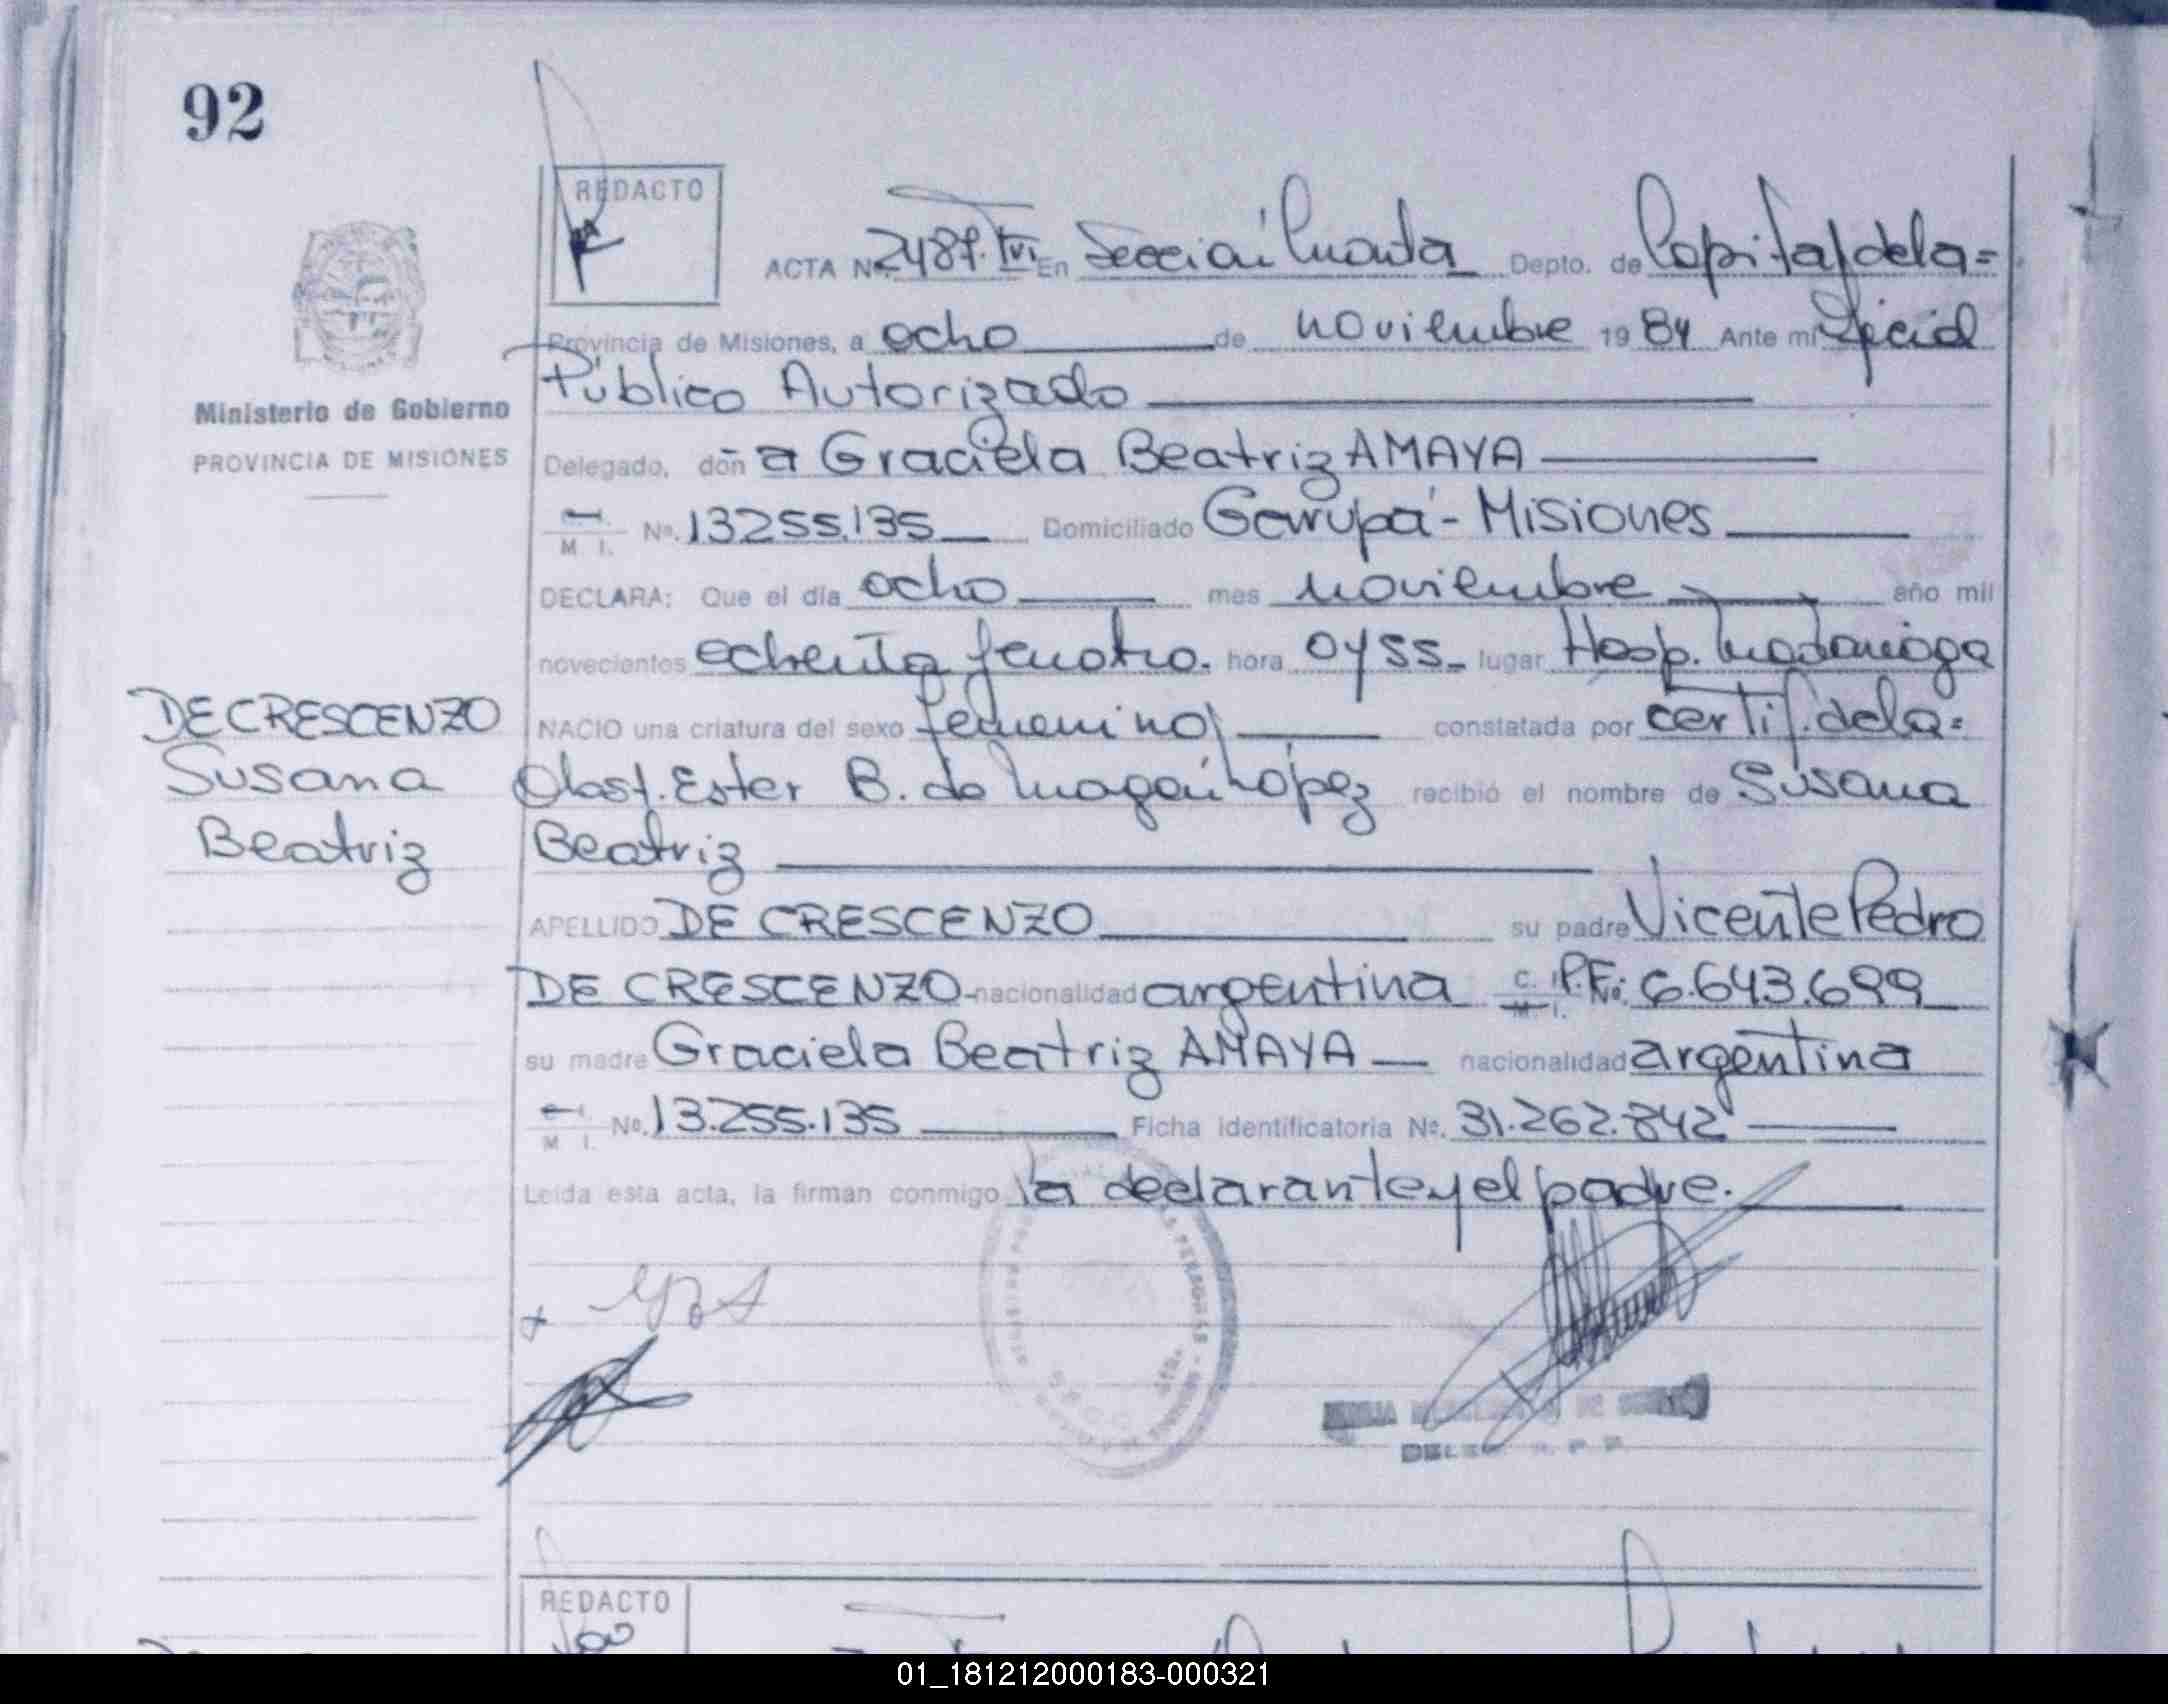 92
REDACTO
ACTA Nº 2487. TVI En Sección Cuarta Depto. de Capital de la=
Provincia de Misiones, a ocho de noviembre 1984 Ante mi Oficial
Público Autorizado
Ministerio de Gobierno
PROVINCIA DE MISIONES
Delegado, don a Graciela Beatriz AMAYA
M. I. Nº. 13255.135 Domiciliado Garupá - Misiones
DECLARA: Que el día ocho mes noviembre año mil
novecientos ochenta y cuatro. hora 0455 lugar Hosp. Madariaga
NACIO una criatura del sexo femenino constatada por certif. de la=
Obst. Ester B. de López recibió el nombre de Susana
Beatriz
DE CRESCENZO
Susana
Beatriz
APELLIDO DE CRESCENZO su padre Vicente Pedro
DE CRESCENZO nacionalidad argentina C. I. P.F. Nº. 6.643.699
M. I.
su madre Graciela Beatriz AMAYA nacionalidad argentina
M. I. Nº. 13.255.135 Ficha identificatoria Nº. 31.262.842
Leída esta acta, la firman conmigo la declarante y el padre.
REDACTO
01_181212000183-000321